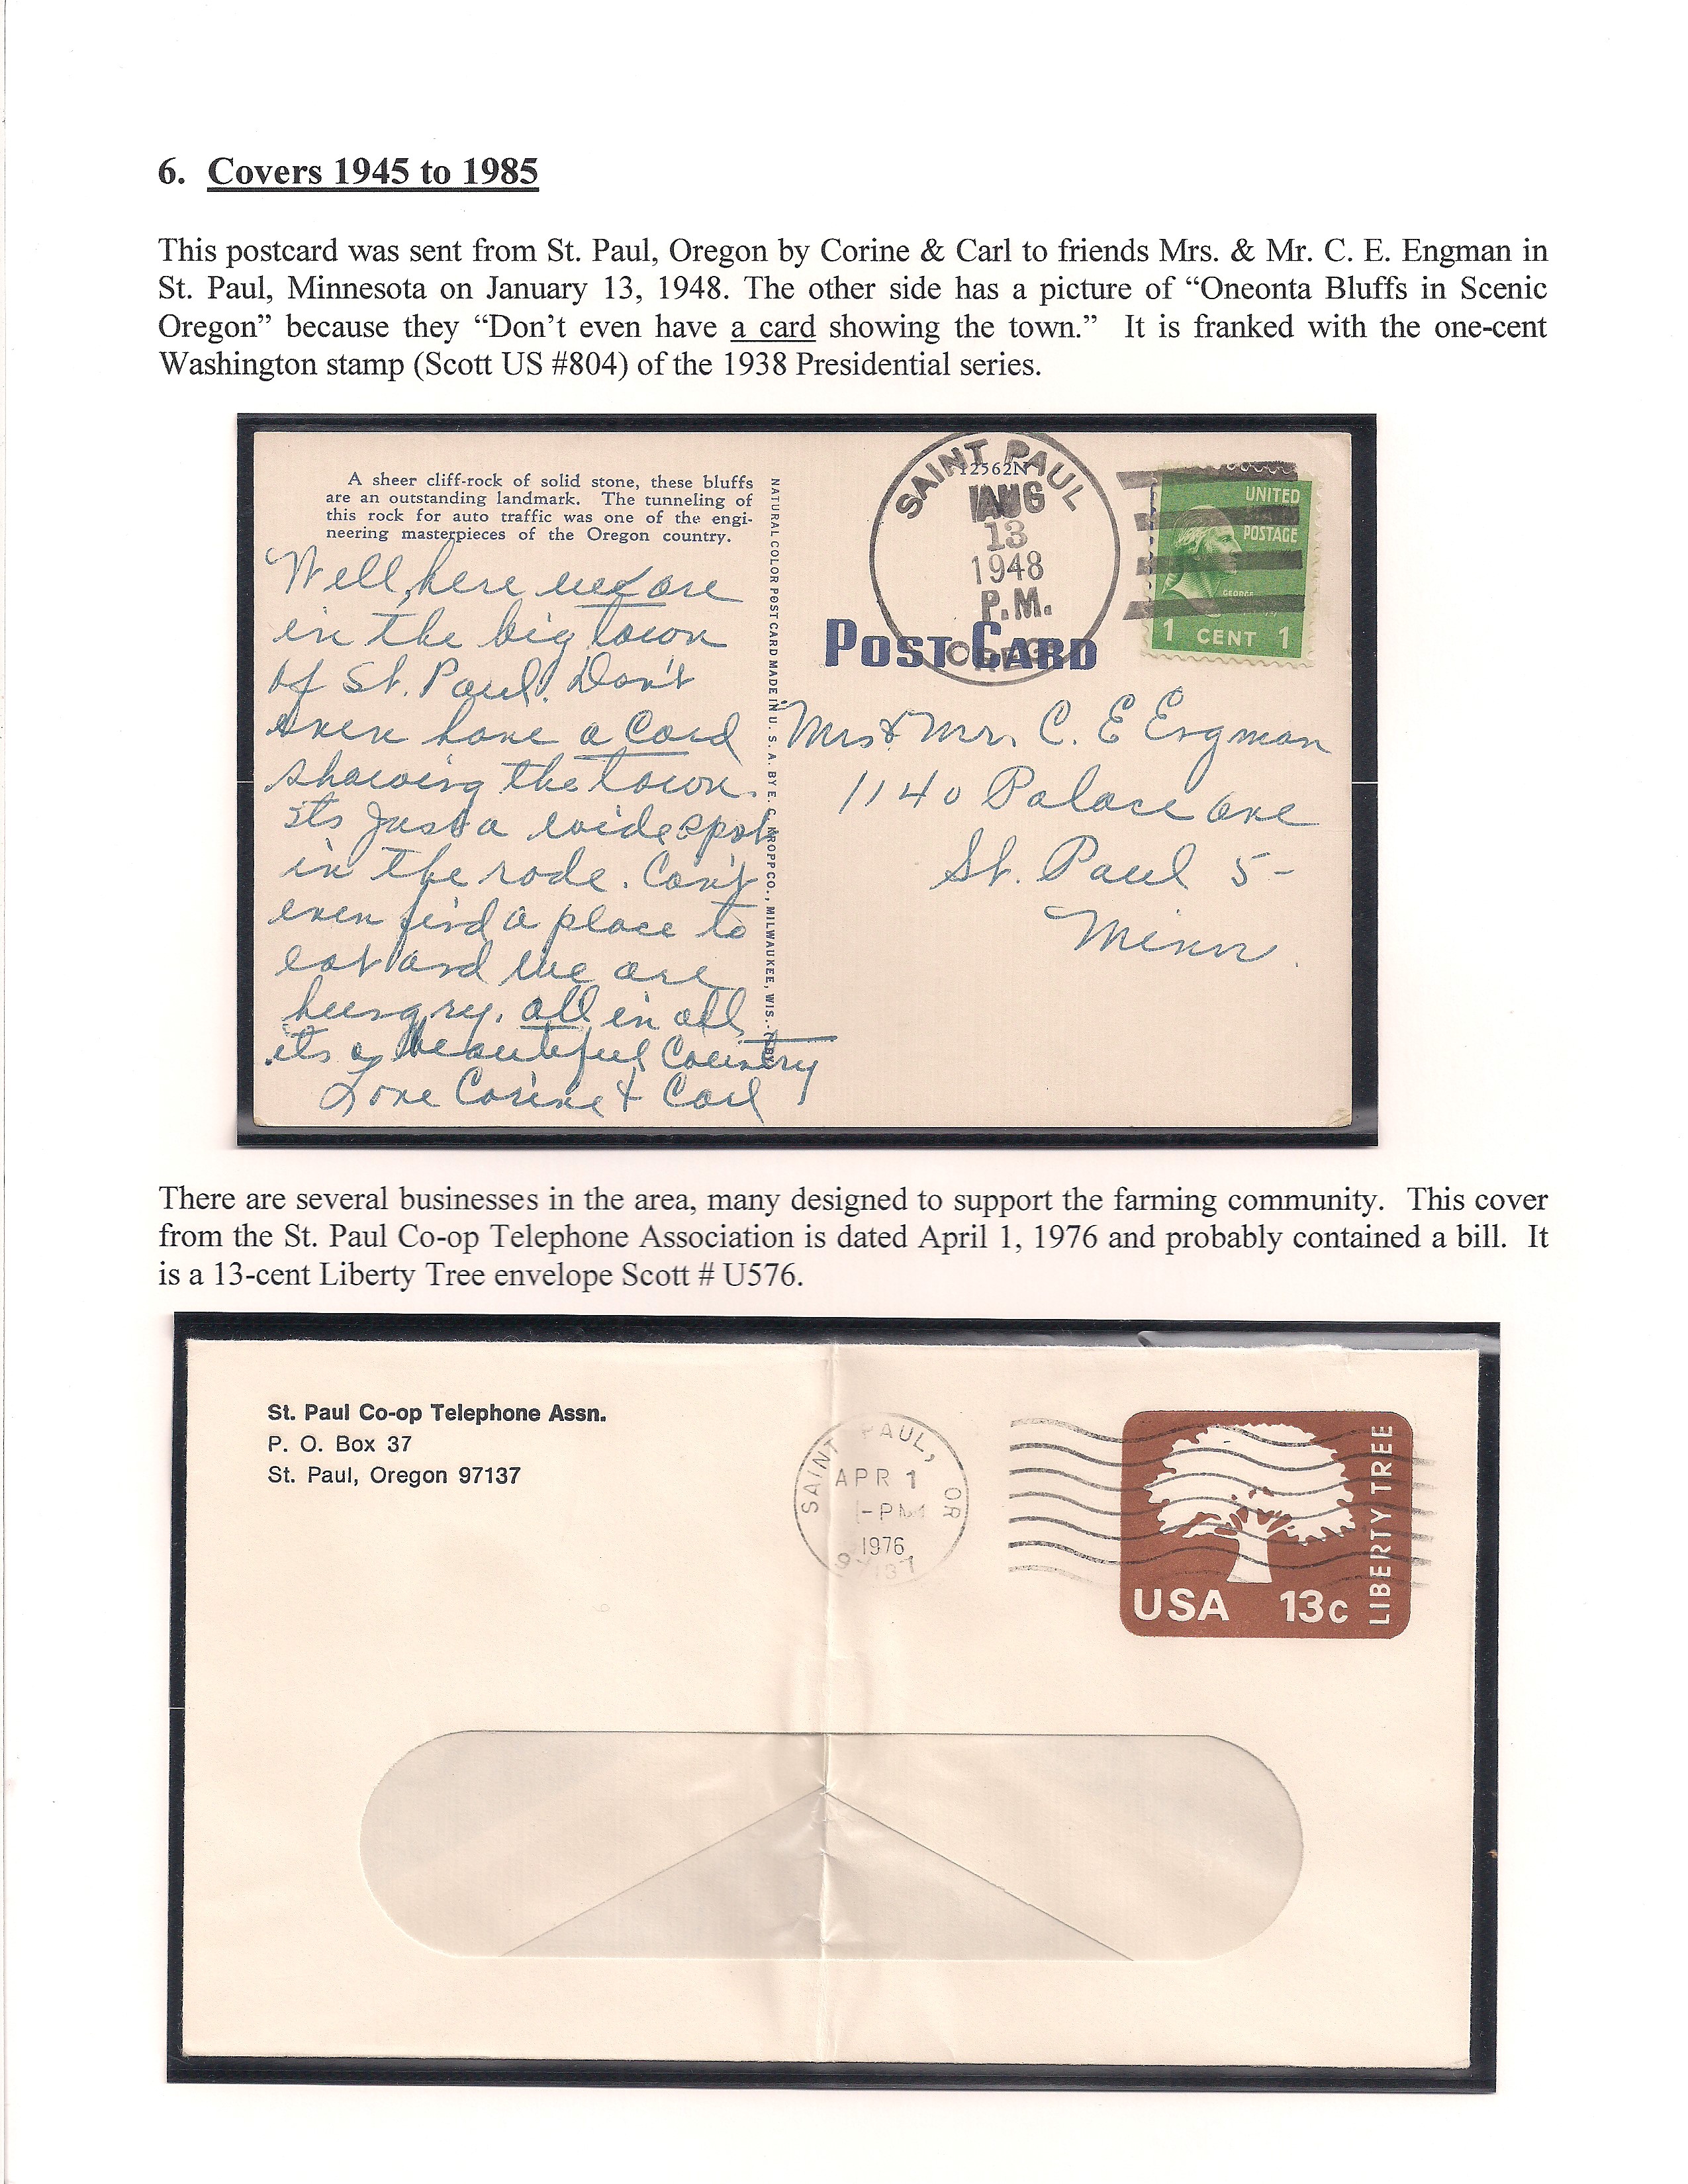 6. Covers 1945 to 1985
This postcard was sent from St. Paul, Oregon by Corine & Carl to friends Mrs. & Mr. C. E. Engman in
St. Paul, Minnesota on January 13, 1948. The other side has a picture of “Oneonta Bluffs in Scenic
Oregon” because they “Don’t even have a card showing the town.” It is franked with the one-cent
Washington stamp (Scott US #804) of the 1938 Presidential series.
A sheer cliff-rock of solid stone, these bluffs
are an outstanding landmark. The tunneling of
this rock for auto traffic was one of the engi-
neering masterpieces of the Oregon country.
Well, here we are
in the big town
of St. Paul. Don't
even have a card
showing the town.
Its just a wide spot
in the rode. Can't
even find a place to
eat and we are
hungry. all in all
its a beautiful Country
Love Corine & Carl
NATURAL COLOR POST CARD MADE IN U. S. A. BY E. C. KROPP CO., MILWAUKEE, WIS.
12562N
SAINT PAUL
AUG
13
1948
P.M.
OREG
POST CARD
UNITED
POSTAGE
GEORGE
1 CENT 1
Mrs & Mr. C. E Engman
1140 Palace ave
St. Paul 5-
Minn.
There are several businesses in the area, many designed to support the farming community. This cover
from the St. Paul Co-op Telephone Association is dated April 1, 1976 and probably contained a bill. It
is a 13-cent Liberty Tree envelope Scott # U576.
St. Paul Co-op Telephone Assn.
P. O. Box 37
St. Paul, Oregon 97137
SAINT PAUL, OR
APR 1
PM
1976
97137
LIBERTY TREE
USA 13c